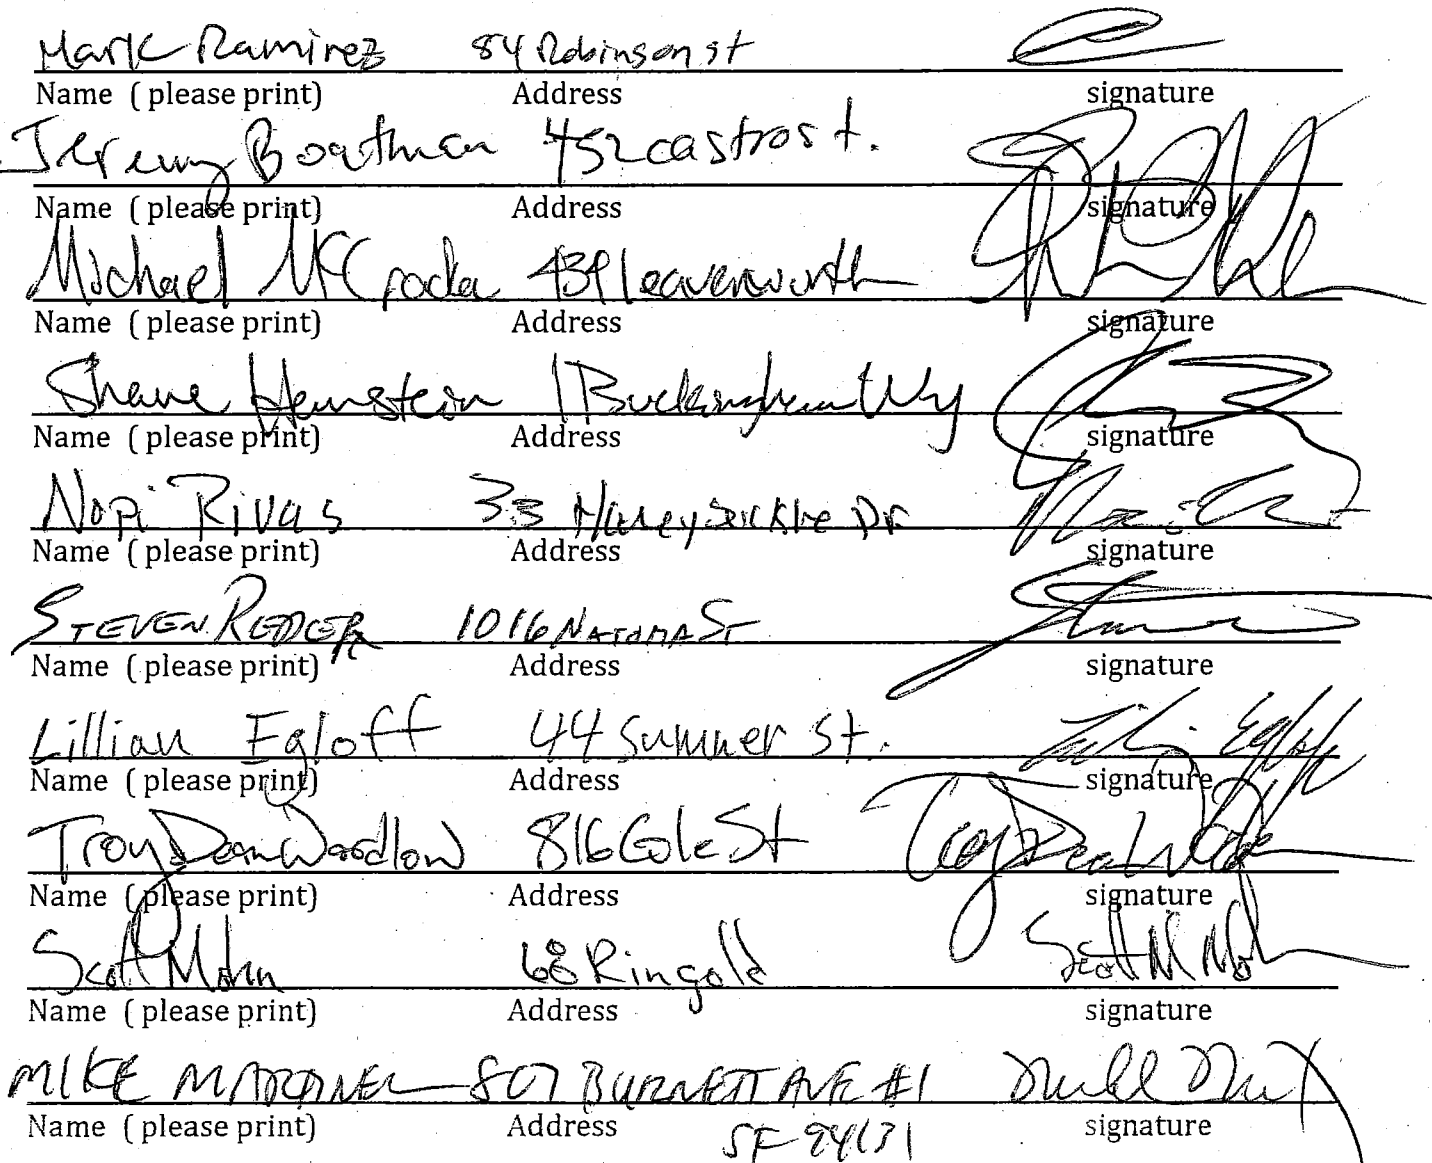 Mark Ramirez 84 Robinson st
Name ( please print) Address signature
Jeremy Boatman 452 castro st.
Name ( please print) Address signature
Michael McCrocka 439 leavenworth
Name ( please print) Address signature
Shane 1 Buckingham Wy
Name ( please print) Address signature
Nopi Rivas 33 Honeysuckle Dr
Name ( please print) Address signature
STEVEN REDDER 1016 NATOMA ST
Name ( please print) Address signature
Lillian Egloff 44 Sumner St. Egloff
Name ( please print) Address signature
Troy Dean Woodlow 816 Cole St Troy Dean
Name ( please print) Address signature
Scott Mohn 68 Ringold Scott M Mohn
Name ( please print) Address signature
MIKE 807 BURNETT AVE #1
Name ( please print) Address signature
SF 94131